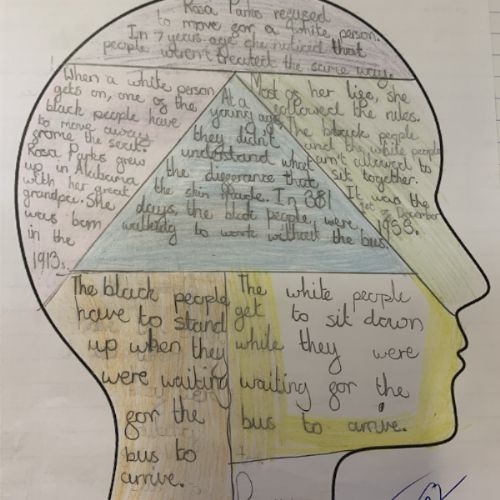 Rosa Parks recused
to move gor a white person.
In 7 years age she noticed that
people weren't treated the same way.
When a white person
gets on, one of the
black people have
to move away
grome the seats
Rosa Parks grew
up in Alabama
with her great
grandpec. She
was born
in the
1913.
At a
young age,
they didn't
understand what
the digerance that
the skin made. In 381
days, the black people, were
walking to work without the bus
Most os her lige, she
gollowed the rules.
The black people
and the white people
arn't allowed to
sit together.
It was the
1st December
1955.
The black people
have to stand
up when they
were waiting
gor the
bus to
arrive.
The white people
get to sit down
while they were
waiting gor the
bus to arrive.